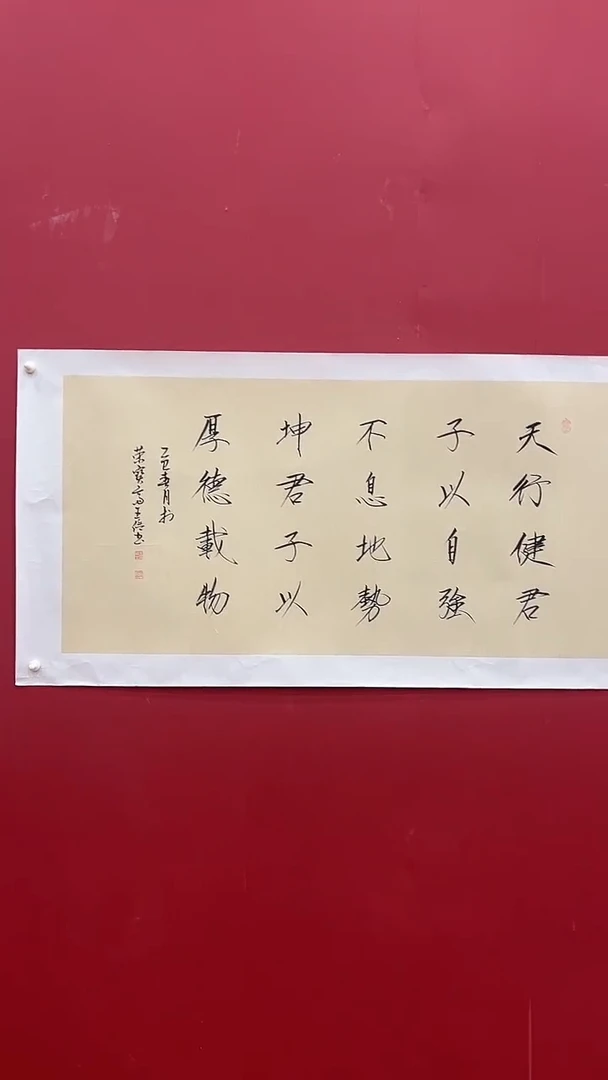 天行健君
子以自強
不息地勢
坤君子以
厚德載物
乙巳春月於
荣寶斋王